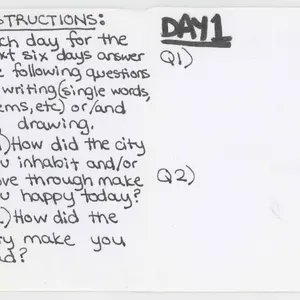 STRUCTIONS:
ch day for the
xt six days answer
e following questions
writing(single words,
ems, etc) or/and
drawing.
)How did the city
u inhabit and/or
ove through make
u happy today?
)How did the
ty make you
ad?
DAY1
Q1)
Q2)